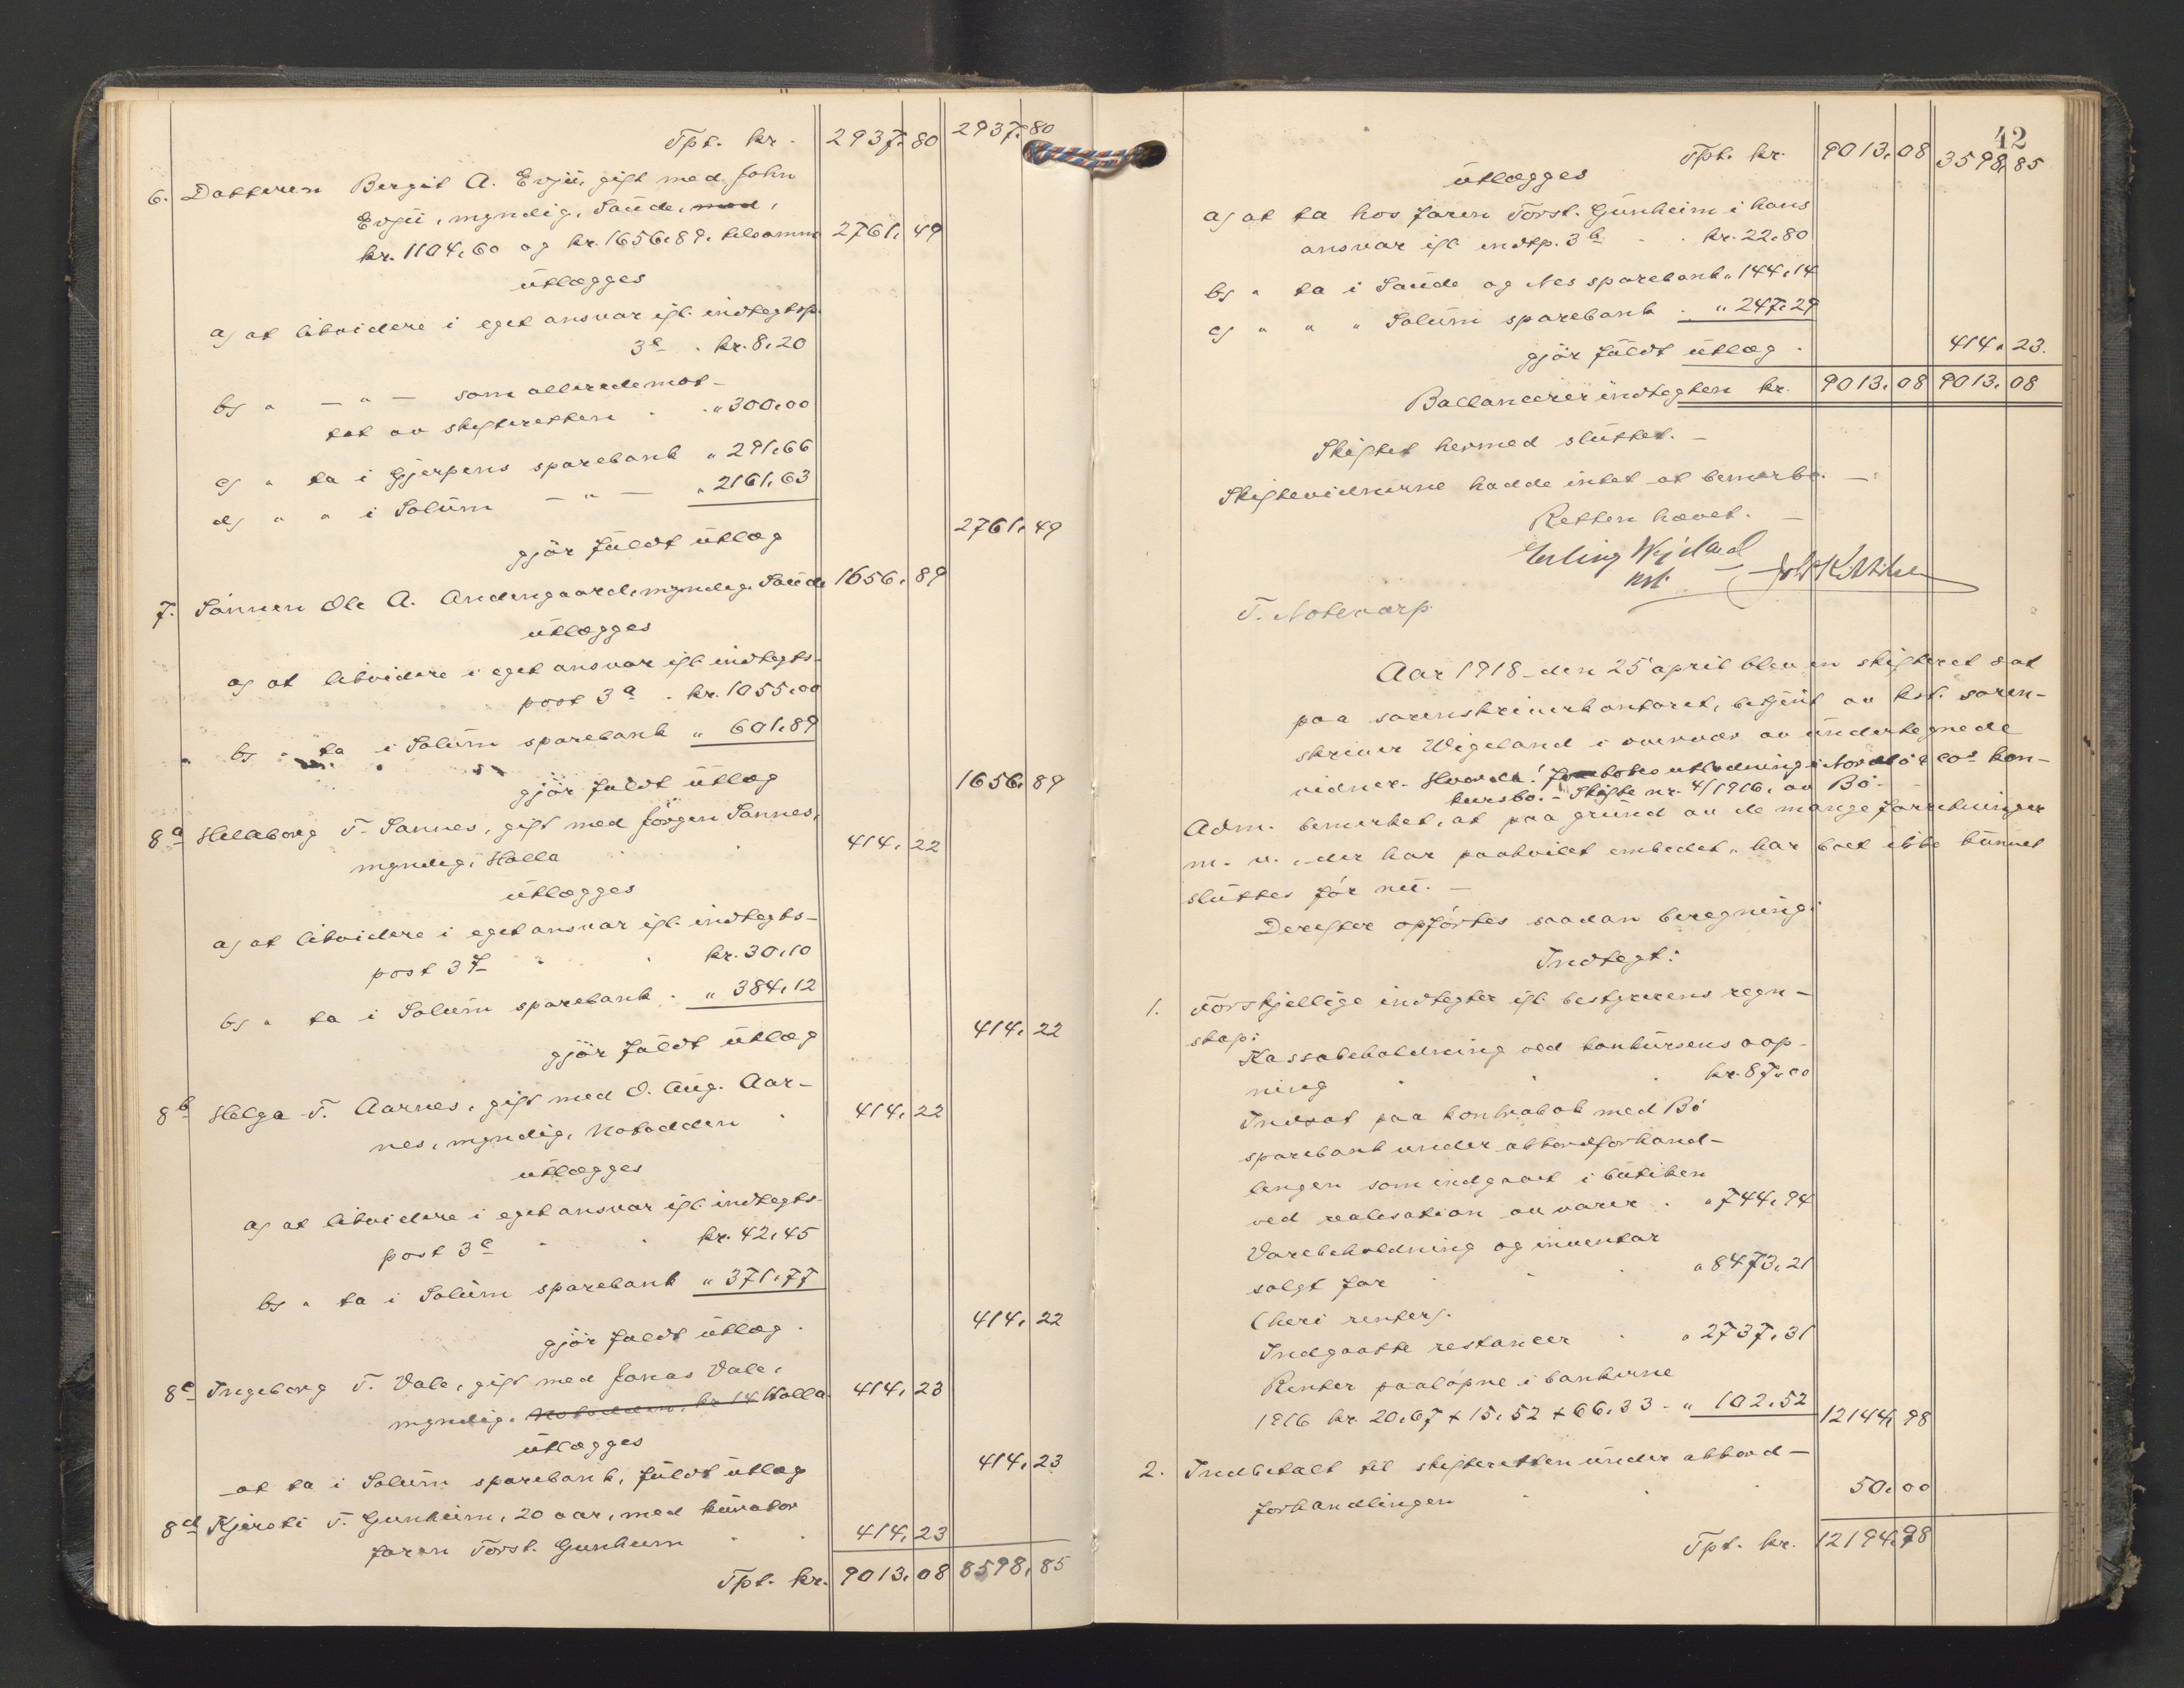 Tpt. kr. 2937,80 2937,80
6. Datteren Bergit A. Evju, gift med John
Evju, myndig, Saude, med,
kr. 1104,60 og kr. 1656,89, tilsamm 2761,49
utlægges
a) at likvidere i eget ansvar ifl. indtegtsp.
3e . kr. 8,20
b) " — " — som allerede mot-
tat av skifteretten . . " 300,00
c) " ta i Gjerpens sparebank " 291,66
d) " " i Solum — " — " 2161,63
gjör fuldt utlæg 2761,49
7. Sönnen Ole A. Andengaard, myndig, Saude 1656,89
utlægges
a) at likvidere i eget ansvar ifl. indtegts-
post 3a . kr. 1055,00
b) " ta i Solum sparebank " 601,89
gjör fuldt utlæg 1656,89
8a Helleborg T. Sannes, gift med Jörgen Sannes,
myndig, Holla 414,22
utlægges
a) at likvidere i eget ansvar ifl. indtegts-
post 3f . . kr. 30,10
b) " ta i Solum sparebank . " 384,12
gjör fuldt utlæg 414,22
8b Helga T. Aarnes, gift med O. Aug. Aar-
nes, myndig, Notodden 414,22
utlægges
a) at likvidere i eget ansvar ifl. indtegts-
post 3c . . kr. 42,45
b) " ta i Solum sparebank " 371,77
gjör fuldt utlæg . 414,22
8c Ingeborg T. Vale, gift med Jonas Vale,
myndig, Notodden, kr 14 Holla 414,23
utlægges
at ta i Solum sparebank, fuldt utlæg 414,23
8d Kjersti T. Gunheim, 20 aar, med kurator
faren Torst. Gunheim 414,23
Tpt. kr. 9013,08 8598,85
42
Tpt. kr. 9013,08 3598,85
utlægges
a) at ta hos faren Torst. Gunheim i hans
ansvar ifl. indtp. 3b . . kr. 22,80
b) " ta i Saude og Nes sparebank " 144,14
c) " " " Solum sparebank . " 247,29
gjör fuldt utlæg . 414,23.
Ballancerer indtegten kr. 9013,08 9013,08
Skiftet hermed sluttet. —
Skiftevidnerne hadde intet at bemerke. —
Retten hævet. —
Erling Wigeland
kst.
T. Notevarp
Aar 1918 den 25 april blev en skifteret sat
paa sorenskriverkontoret, betjent av kst. soren-
skriver Wigeland i overvær av undertegnede
vidner. Hvorda! Foretokes utlodning i Nordbö & Cos kon-
kursbo. - Skifte nr. 4/1916, av Bö.
Adm. bemerket, at paa grund av de mange forretninger
m. v., der har paahvilet embedet, har boet ikke kunnet
sluttes för nu. —
Derefter opförtes saadan beregning:
Indtegt:
1. Forskjellige indtegter ifl. bestyrerens regn-
skap:
Kassabeholdning ved konkursens aap-
ning . . kr. 87,00
Indsat paa kontrabok med Bö
sparebank under akkordforhand-
lingen som indgaaet i butiken
ved realisation av varer . " 744,94
Varebeholdning og inventar
solgt for . . " 8473,21
(heri renter).
Indgaatte restancer . " 2737,31
Renter paalöpne i bankerne
1916 kr. 20,67 + 15,52 + 66,33 - " 102,52 12144,98
2. Indbetalt til skifteretten under akkord-
forhandlingen . . . 50,00
Tpt. kr. 12194,98